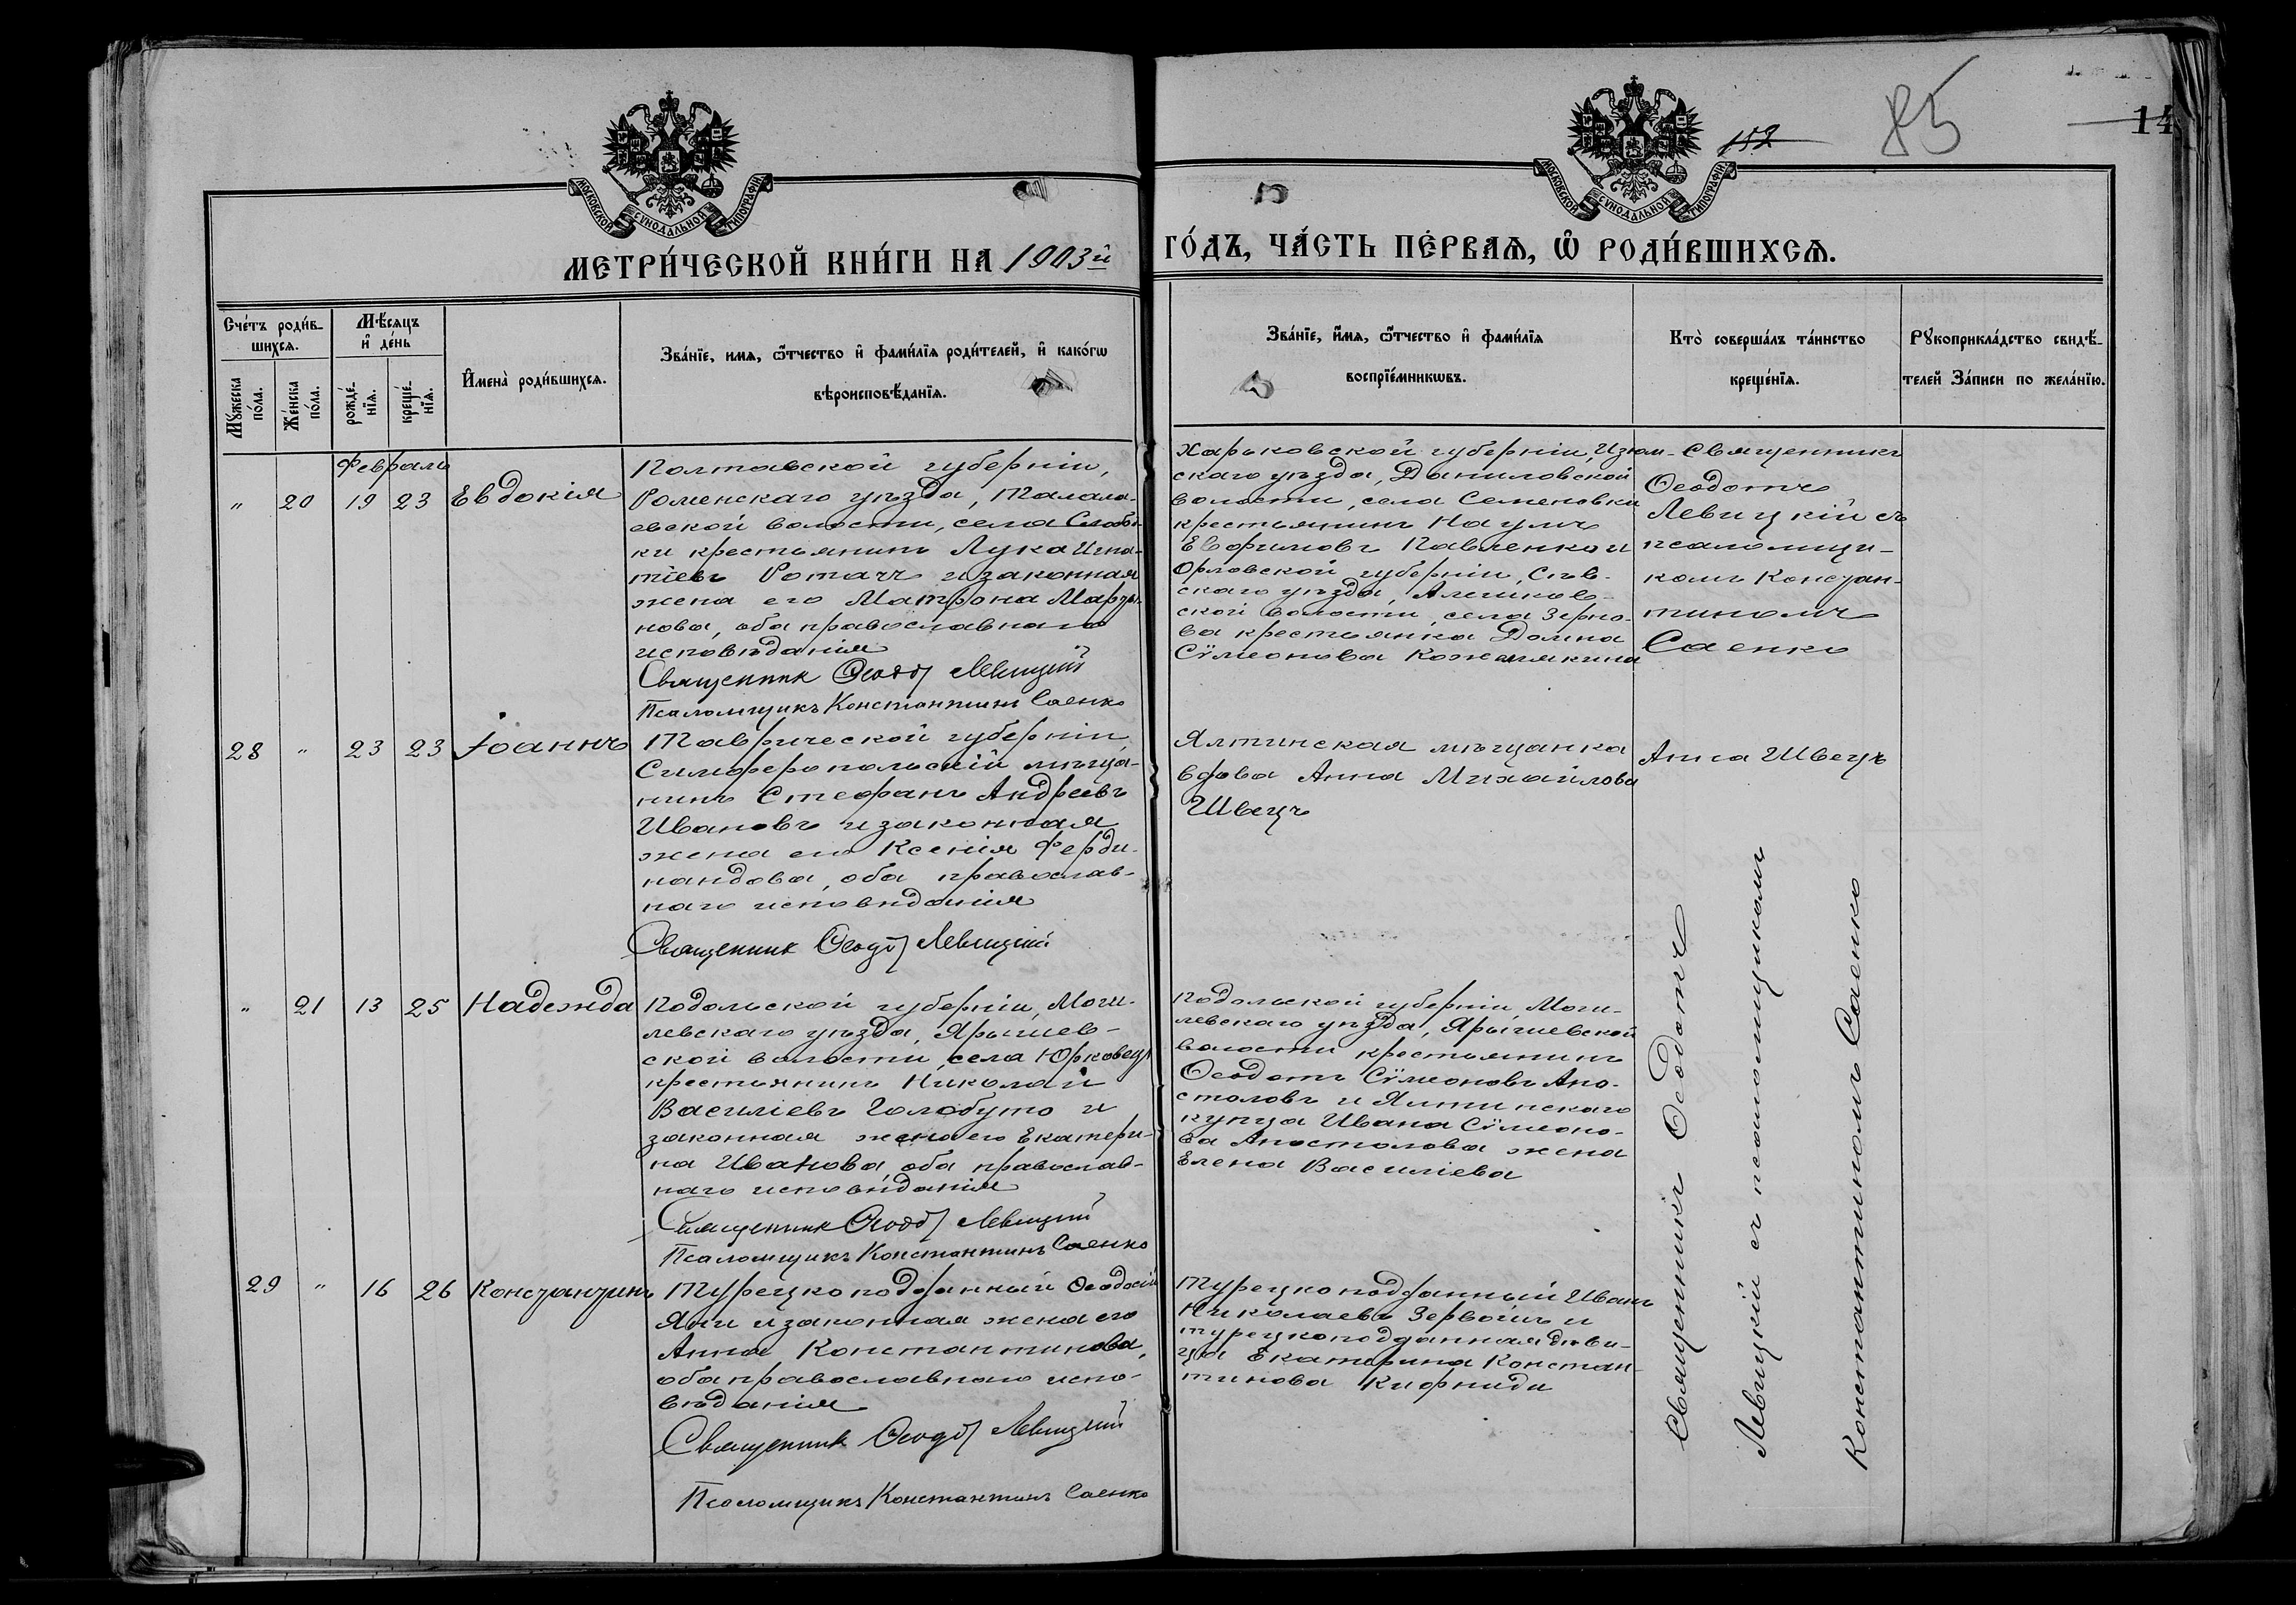 152
85
14
МОСКОВСКОЙ СѴНОДАЛЬНОЙ ТИПОГРАФІИ
МОСКОВСКОЙ СѴНОДАЛЬНОЙ ТИПОГРАФІИ
МЕТРИ́ЧЕСКОЙ КНИ́ГИ НА 1903й
ГО́ДЪ, ЧА́СТЬ ПЕ́РВАѦ, Ѡ҆ РОДИ́ВШИХСѦ.
Счéтъ роди́в-
шихсѧ.
Мꙋ́жеска
по́ла.
Же́нска
по́ла.
Мѣ́сѧцъ
и҆ де́нь
рожде́-
нїѧ.
креще́-
нїѧ.
И҆менà роди́вшихсѧ.
Зва́нїе, имѧ, ѻ҆́тчество и҆ фами́лїѧ роди́телей, и҆ како́гѡ
вѣроисповѣ́данїѧ.
Зва́нїе, и҆́мѧ, ѻ҆́тчество и҆ фами́лїѧ
воспрїе́мникѡвъ.
Кто̀ соверша́лъ та́инство
креще́нїѧ.
Рꙋкоприкла́дство свидѣ́-
телей За́писи по жела́нїю.
Февраль
" 20 19 23 Евдокія
Полтавской губерніи,
Роменскаго уѣзда, Талала-
евской волости, села Слобод-
ки крестьянинъ Лука Игна-
тіевъ Ротачъ и законная
жена его Матрона Марты-
нова, оба православнаго
исповѣданія
Священник Ѳеодот Левицкій
Псаломщикъ Константинъ Саенко
Харьковской губерніи, Изюм-
скаго уѣзда, Даниловской
волости, села Семеновки
крестьянинъ Наумъ
Евфимовъ Павленко и
Орловской губерніи, Сѣв-
скаго уѣзда,
ской волости, села Зерно-
ва крестьянка Домна
Сѵмеонова Кожемякина
Священникъ
Ѳеодотъ
Левицкій съ
псаломщи-
комъ Констан-
тиномъ
Саенко
28 " 23 23 Іоаннъ
Таврической губерніи
Симферопольскій мѣща-
нинъ Стефанъ Андреевъ
Ивановъ и законная
жена его Ксенія Ферди-
нандова, оба православ-
наго исповѣданія
Священник Ѳеодот Левицкій
Ялтинская мѣщанка
вдова Анна Михайлова
Швецъ
Анна Швецъ
" 21 13 25 Надежда
Подольской губерніи, Моги-
левскаго уѣзда, Ярышев-
ской волости, села Юрковецъ
крестьянинъ Николай
Василіевъ Голобуто и
законная жена его Екатери-
на Иванова, оба православ-
наго исповѣданія
Священник Ѳеодот Левицкій
Псаломщикъ Константинъ Саенко
Подольской губерніи, Моги-
левскаго уѣзда, Ярышевской
волости крестьянинъ
Ѳеодотъ Сѵмеоновъ Апо-
столовъ и Ялтинскаго
купца Ивана Сѵмеоно-
ва Апостолова жена
Елена Василіева
29 " 16 26 Константинъ
Турецкоподданный Ѳеодосій
Яни и законная жена его
Анна Константинова,
оба православнаго испо-
вѣданія
Священник Ѳеодот Левицкій
Псаломщикъ Константинъ Саенко
Турецкоподданный Иванъ
Николаевъ Зервоглы и
турецкоподданная дѣви-
ца Екатерина Констан-
тинова Кифниди
Священникъ Ѳеодотъ
Левицкій съ псаломщикомъ
Константиномъ Саенко